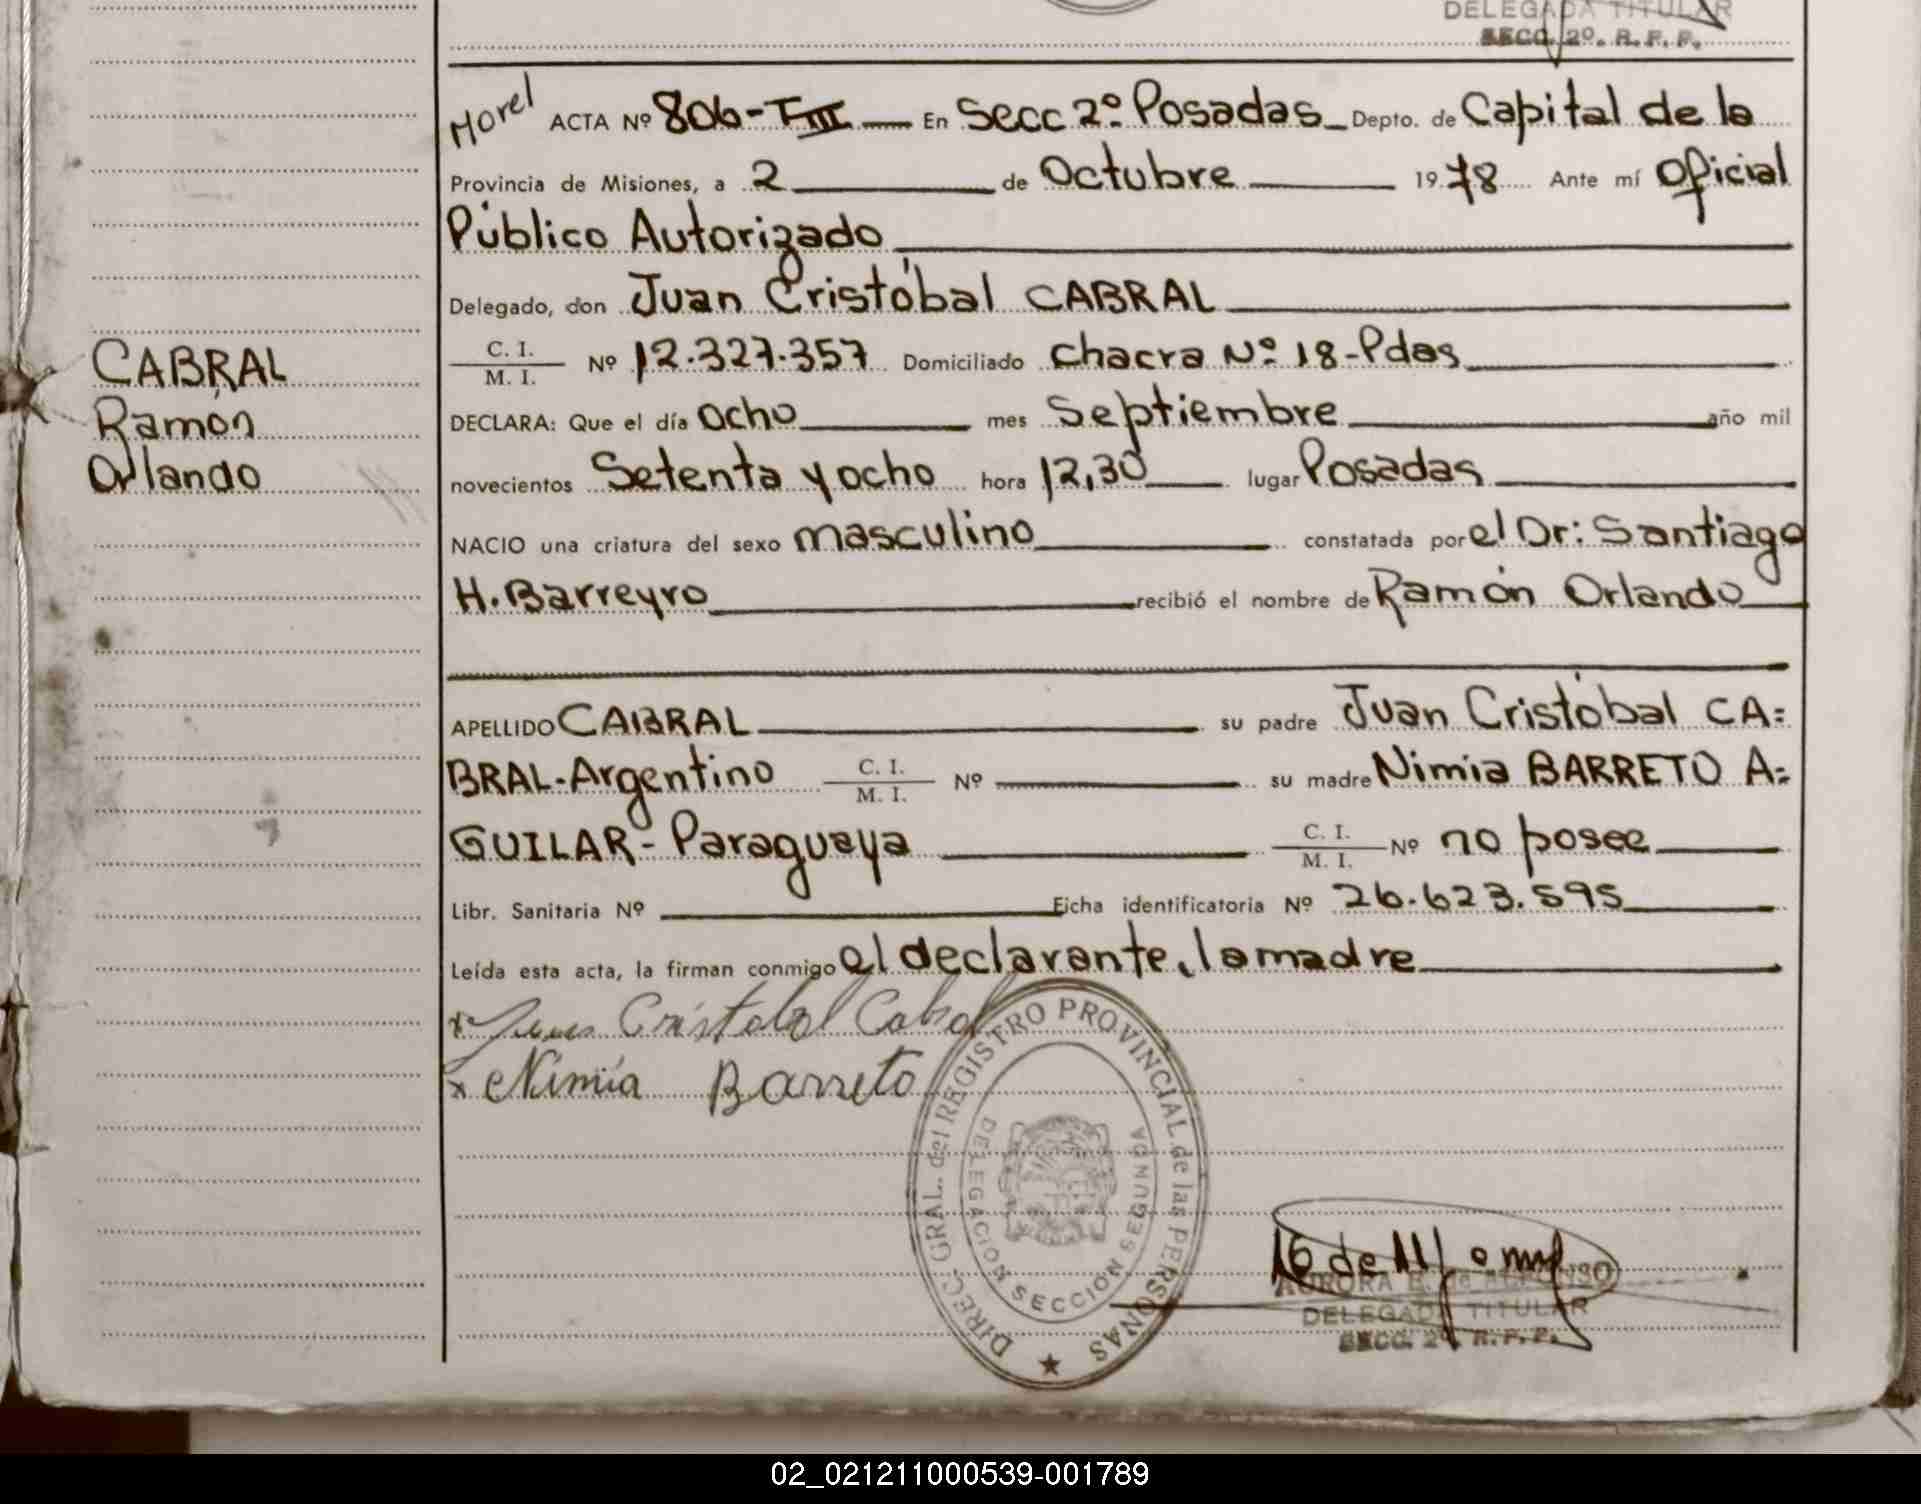 DELEGADA TITULAR
SECC. 2º. R. P. P.
Morel ACTA Nº 806-TIII En Secc 2º Posadas Depto. de Capital de la
Provincia de Misiones, a 2 de Octubre 1978 Ante mí Oficial
Público Autorizado
Delegado, don Juan Cristóbal CABRAL
C. I.
M. I. Nº 12.327.357 Domiciliado Chacra Nº 18-Pdas
CABRAL
Ramón
Orlando
DECLARA: Que el día ocho mes Septiembre año mil
novecientos Setenta y ocho hora 12,30 lugar Posadas
NACIO una criatura del sexo masculino constatada por el Dr: Santiago
H. Barreyro recibió el nombre de Ramón Orlando
APELLIDO CABRAL su padre Juan Cristóbal CA=
BRAL-Argentino C. I. M. I. Nº su madre Nimia BARRETO A=
GUILAR- Paraguaya C. I. M. I. Nº no posee
Libr. Sanitaria Nº Ficha identificatoria Nº 26.623.595
Leída esta acta, la firman conmigo el declarante, la madre
x Juan Cristobal Cabral
x Nimia Barreto
DIREC. GRAL. del REGISTRO PROVINCIAL de las PERSONAS
DELEGACION SECCION SEGUNDA
AURORA E. de
DELEGADA TITULAR
SECC. 2º R. P. P.
02_021211000539-001789